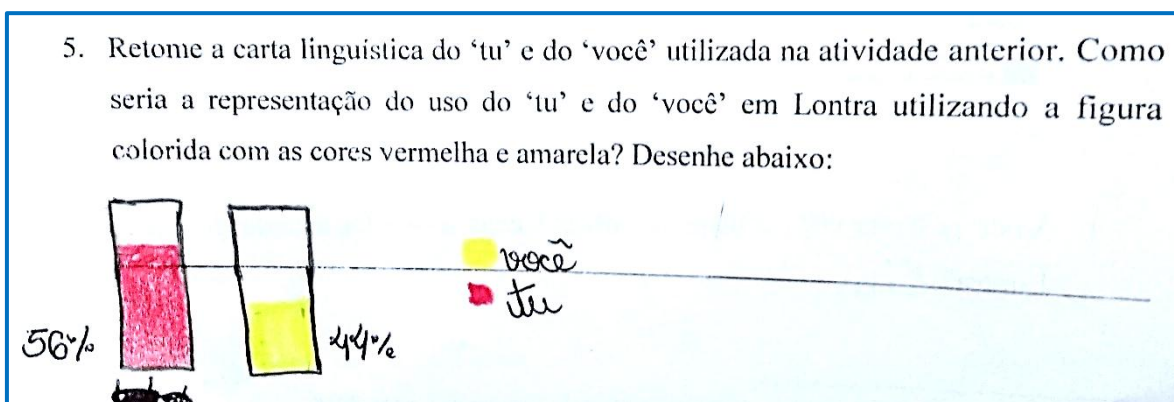 5. Retome a carta linguística do ‘tu’ e do ‘você’ utilizada na atividade anterior. Como
seria a representação do uso do ‘tu’ e do ‘você’ em Lontra utilizando a figura
colorida com as cores vermelha e amarela? Desenhe abaixo:
você
tu
56%
44%